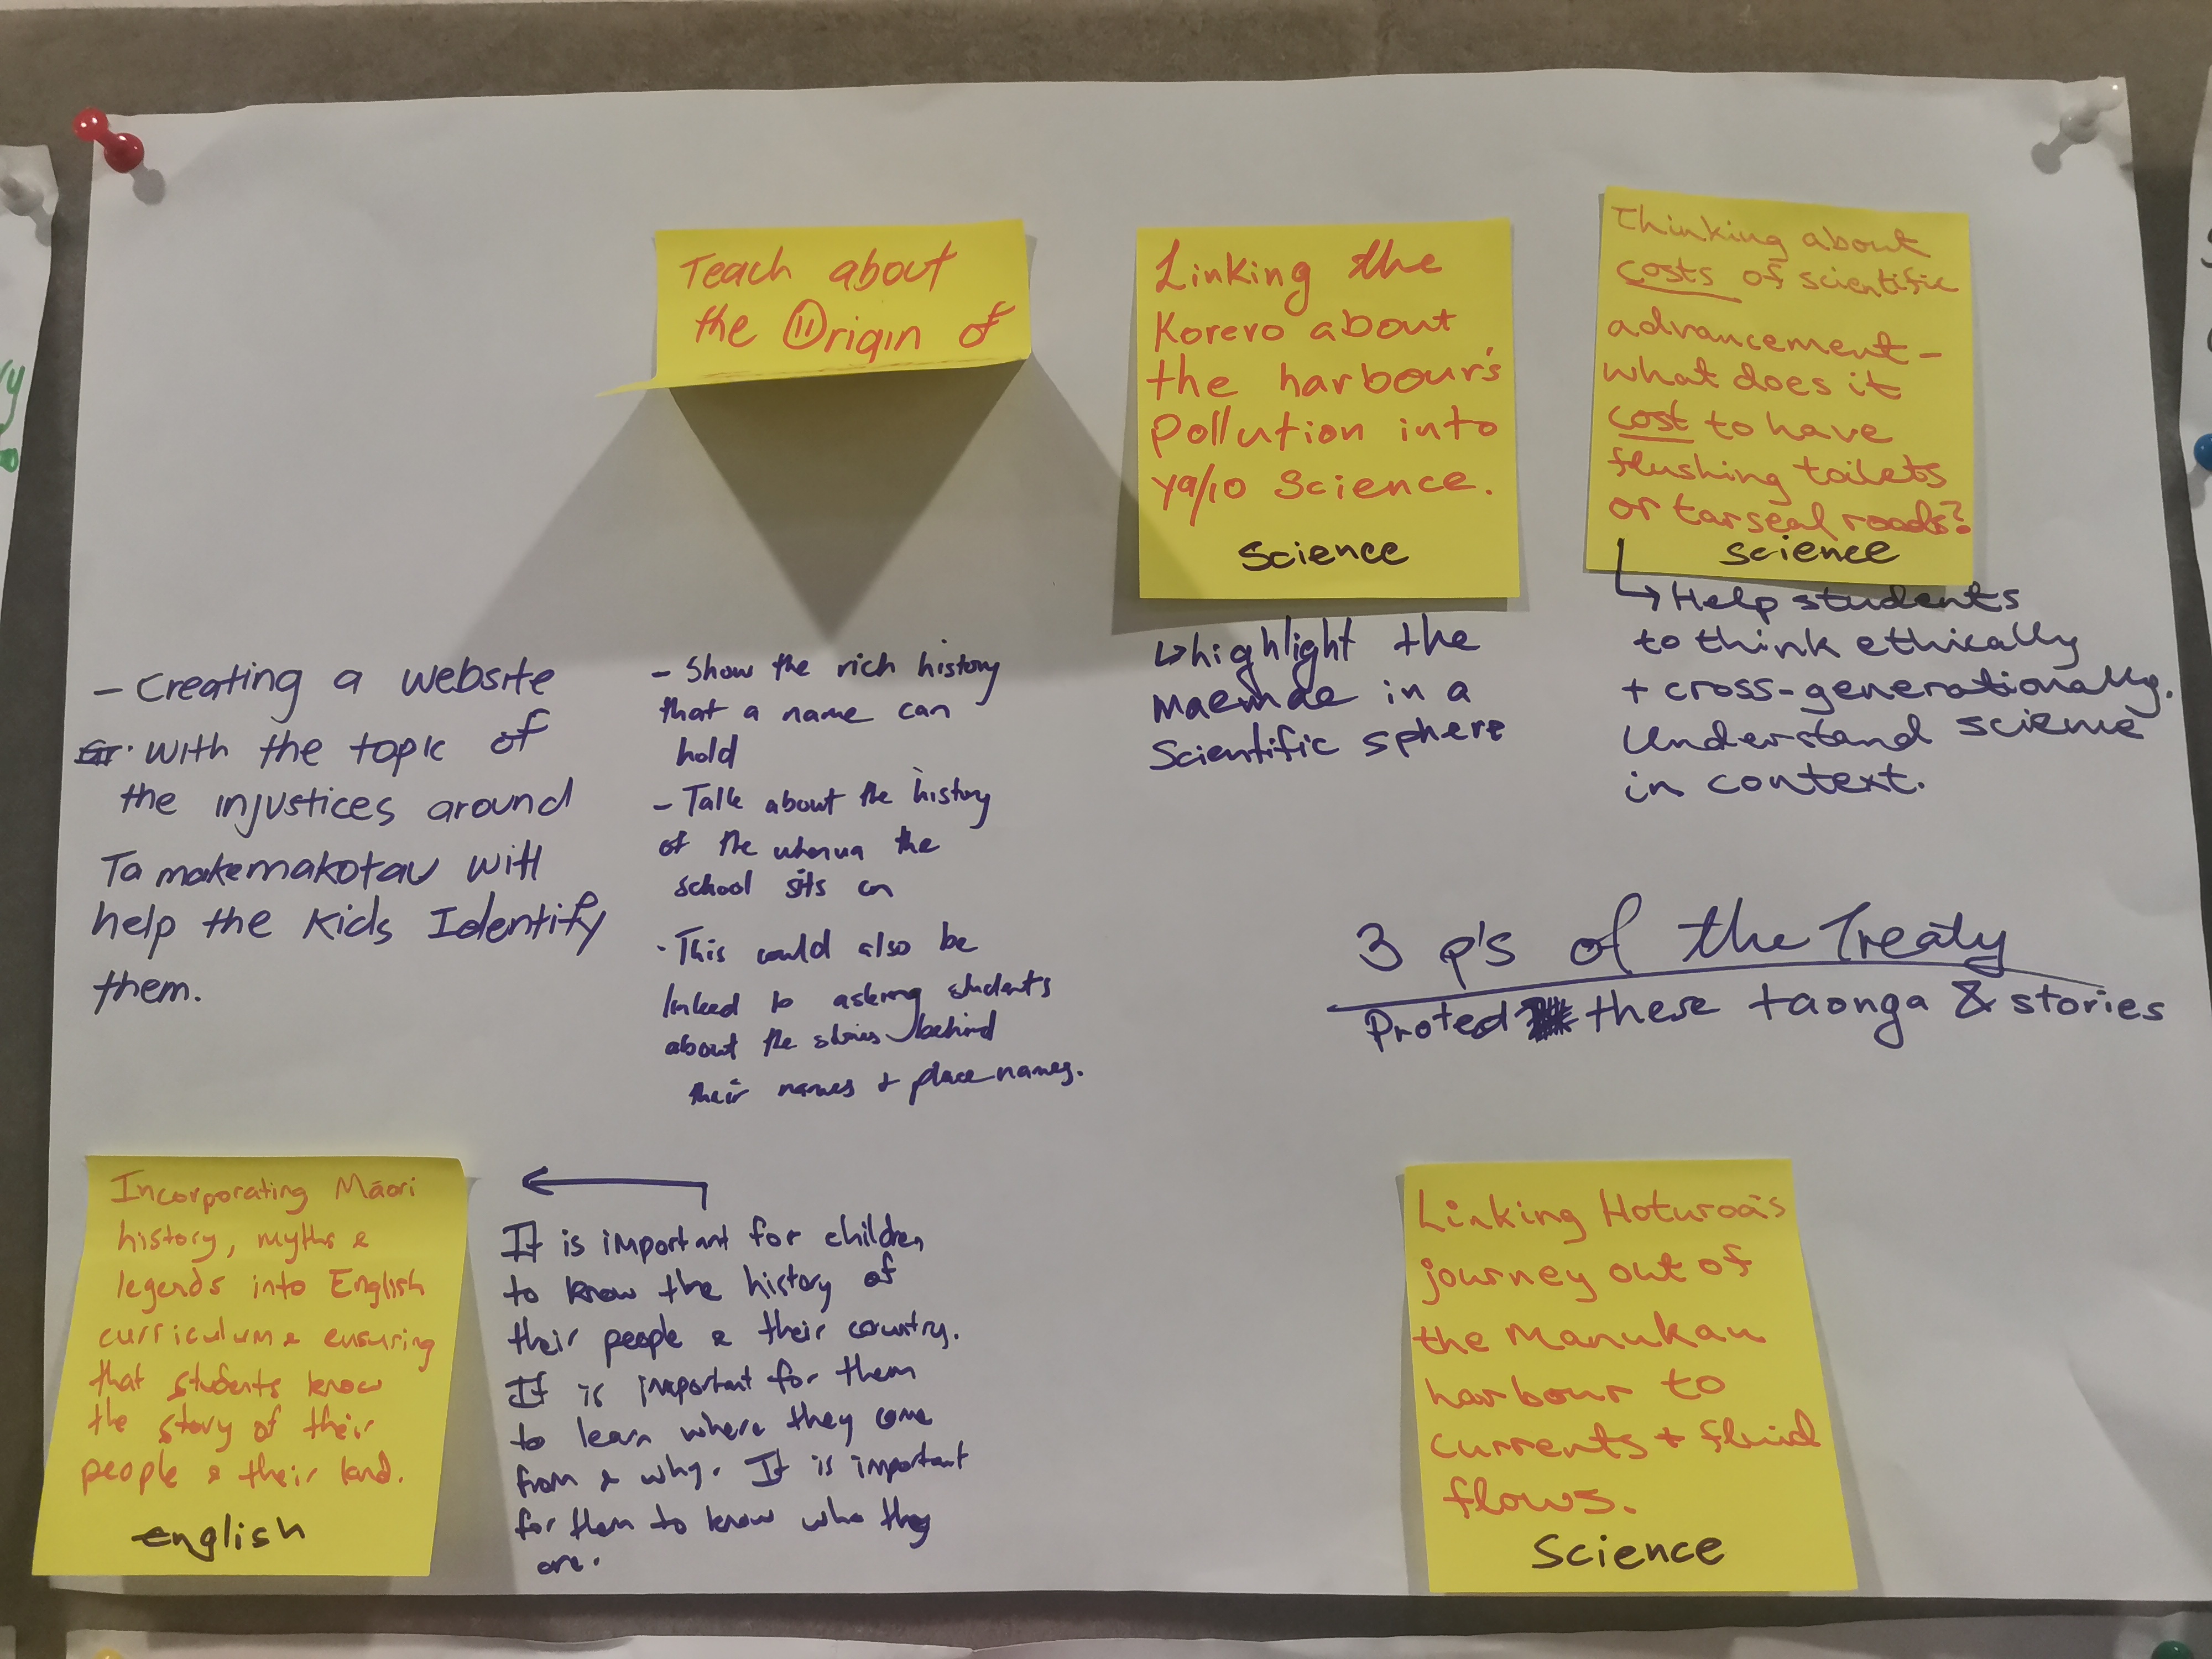 Teach about
the Origin of
Linking the
Korero about
the harbour's
pollution into
y9/10 Science.
Science
Thinking about
costs of scientific
advancement-
what does it
cost to have
flushing toilets
or tarseal roads?
science
- Creating a website
with the topic of
the injustices around
Tamakemakotau will
help the Kids Identify
them.
- Show the rich history
that a name can
hold
- Talk about the history
of the whenua the
school sits on
- This could also be
linked to asking students
about the stories behind
their names + place names.
↳ highlight the
in a
Scientific sphere
↳ Help students
to think ethically
+ cross-generationally.
Understand science
in context.
3 p's of the Treaty
Protect these taonga & stories
Incorporating Māori
history, myths &
legends into English
curriculum & ensuring
that students know
the story of their
people & their land.
English
It is important for children
to know the history of
their people & their country.
It is important for them
to learn where they come
from & why. It is important
for them to know who they
are.
Linking Hoturoa's
journey out of
the Manukau
harbour to
currents + fluid
flows.
Science